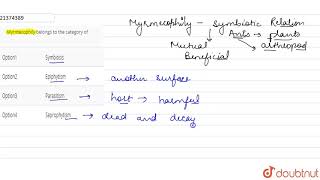 21374389
Myrmecophily belongs to the category of
Option1 Symbiosis
Option2 Epiphytism → another surface
Option3 Parasitism → host → harmful
Option4 Saprophytism → dead and decay
Myrmecophily – symbiotic Relation
Ants → plants
→ arthropod
Mutual
Beneficial
doubtnut